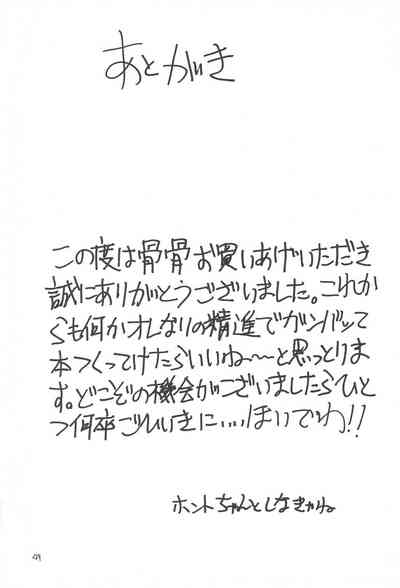 あとがき
この度は骨骨お買いあげいただき
誠にありがとうございました。これか
らも何かオレなりの精進でガンバッて
本つくってけたらいいね〜〜と思っとりま
す。どこぞの機会がございましたらひと
つ何卒ごひいきに、、、、ほいでわ!!
ホントちゃんとしなきゃね